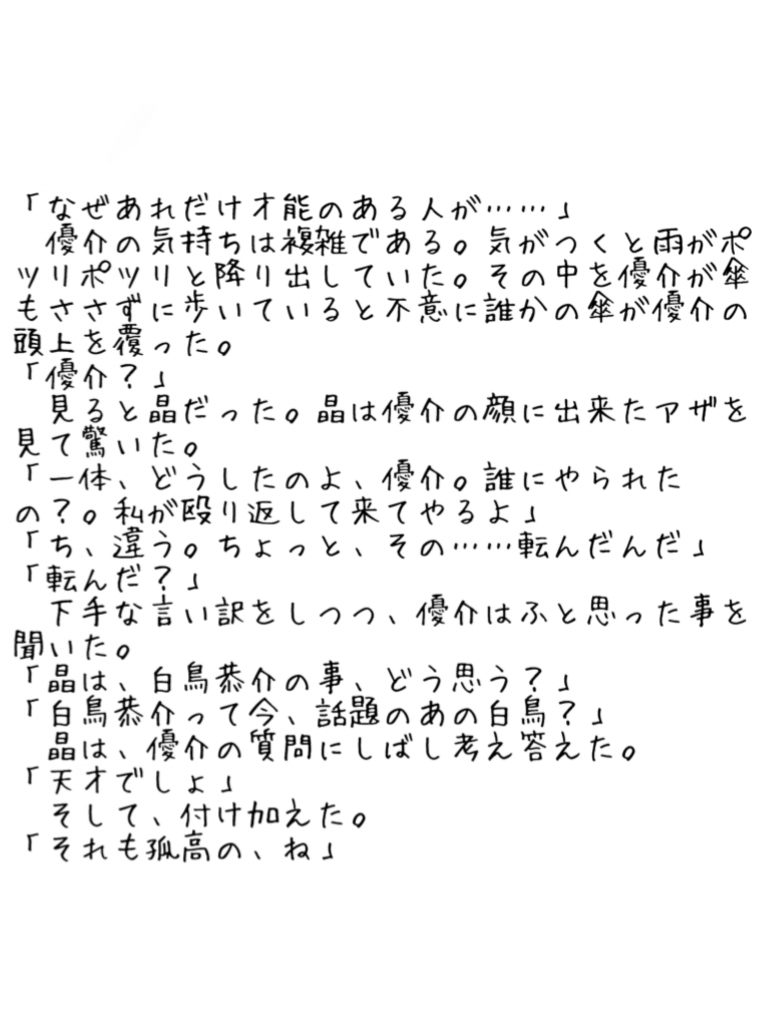 「なぜあれだけ才能のある人が……」
　優介の気持ちは複雑である。気がつくと雨がポ
ツリポツリと降り出していた。その中を優介が傘
もささずに歩いていると不意に誰かの傘が優介の
頭上を覆った。
「優介？」
　見ると晶だった。晶は優介の顔に出来たアザを
見て驚いた。
「一体、どうしたのよ、優介。誰にやられた
の？。私が殴り返して来てやるよ」
「ち、違う。ちょっと、その……転んだんだ」
「転んだ？」
　下手な言い訳をしつつ、優介はふと思った事を
聞いた。
「晶は、白鳥恭介の事、どう思う？」
「白鳥恭介って今、話題のあの白鳥？」
　晶は、優介の質問にしばし考え答えた。
「天才でしょ」
　そして、付け加えた。
「それも孤高の、ね」